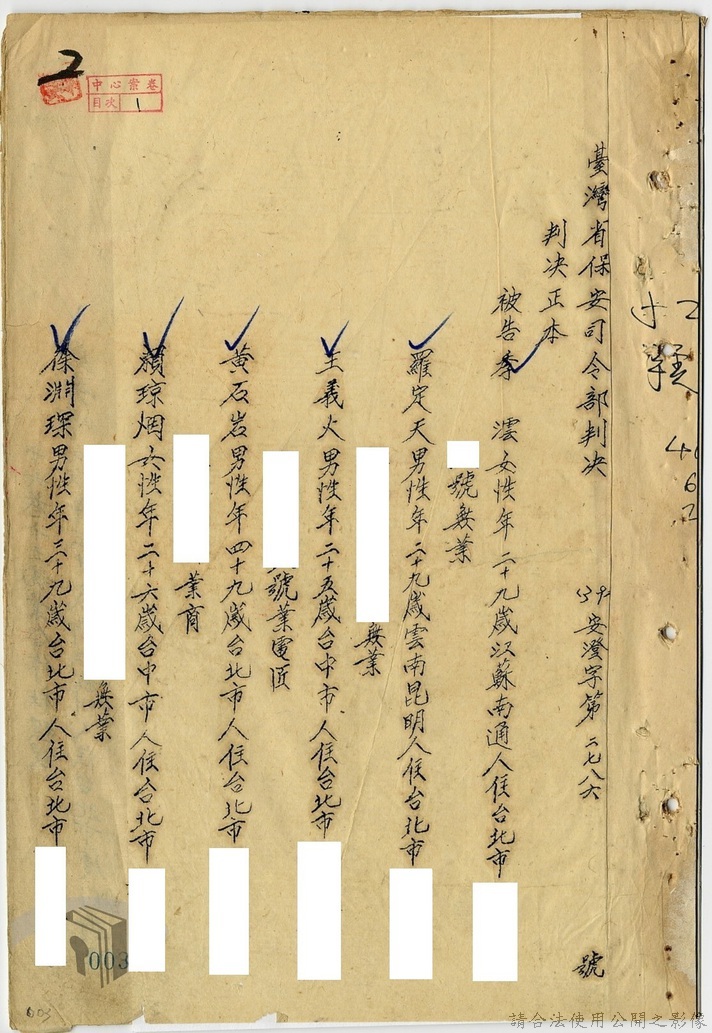 臺灣省保安司令部判決
39安澄字第二七八六號
判決正本
被告李 澐女性年二十九歲江蘇南通人住台北市
號無業
羅定天男性年二十九歲雲南昆明人住台北市
無業
王義火男性年二十五歲台中市人住台北市
號業電匠
黃石岩男性年四十九歲台北市人住台北市
業商
顏琼烟女性年二十六歲台中市人住台北市
無業
徐淵琛男性年三十九歲台北市人住台北市
2
中心案卷
目次 1
003
003
請合法使用公開之影像